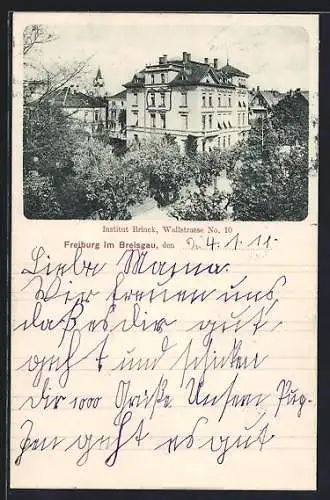 Institut Brinck, Wallstrasse No. 10
Freiburg im Breisgau, den D. 4. 1. 11.
Liebe Mama.
Wir freuen uns,
daß es dir gut
geht und schicken
dir 1000 Grüße. Unsern Pup-
pen geht es gut